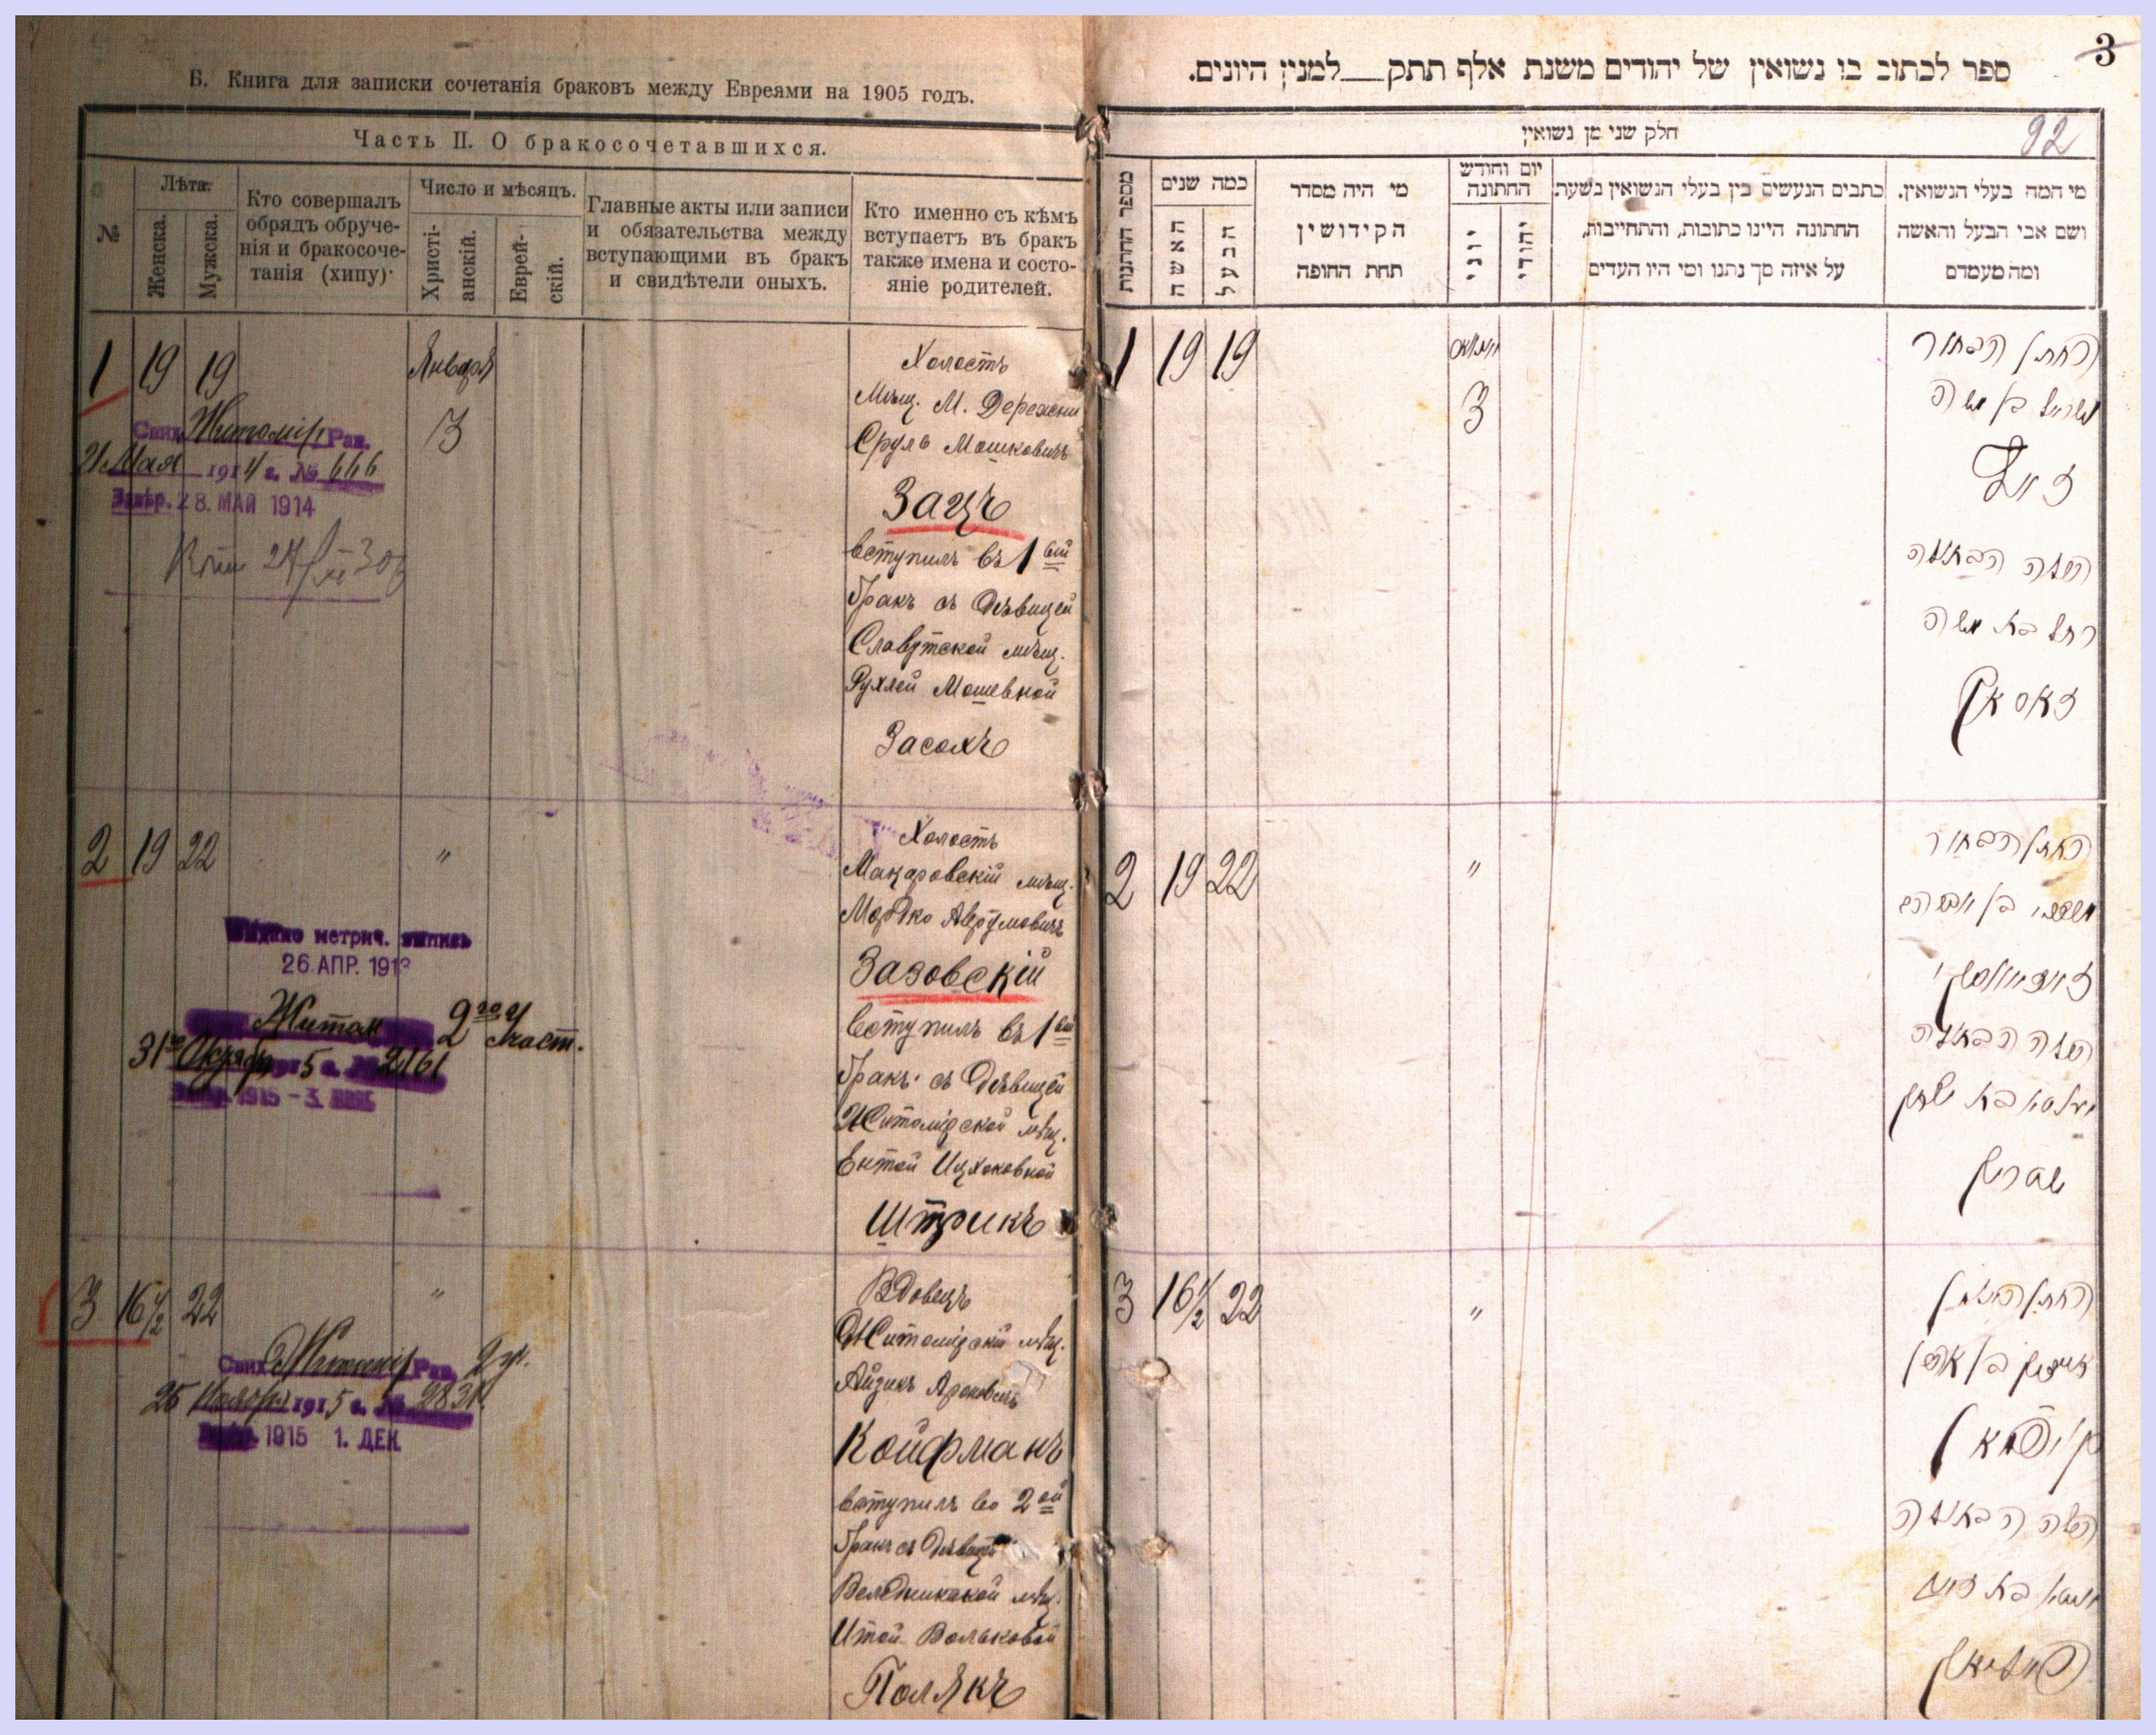 Б. Книга для записки сочетанія браковъ между Евреями на 1905 годъ.
Часть II. О бракосочетавшихся.
№
Лѣта.
Женска.
Мужска.
Кто совершалъ
обрядъ обруче-
нія и бракосоче-
танія (хипу)
Число и мѣсяцъ.
Христі-
анскій.
Еврей-
скій.
Главные акты или записи
и обязательства между
вступающими въ бракъ
и свидѣтели оныхъ.
Кто именно съ кѣмъ
вступаетъ въ бракъ
также имена и состо-
яніе родителей.
1 19 19
Января
3
Свид. Житомір. Рав.
21 Мая 1914 г. № 666
Завѣр. 28. МАЙ 1914
Холостъ
Мѣщ. М. Дережни
Сруль Мошковичъ
Зацъ
вступилъ въ 1 вый
бракъ съ дѣвицей
Славутской мѣщ.
Рухлей Мошевной
Засолъ
2 19 22 "
Выдано метрич. выпись
26. АПР. 191
Житом 2го уч
част.
31го Октября 5 г. 2161
1915 - 3.
Холостъ
Макаровскій мѣщ.
Мордко Аврумовичъ
Зазовскій
вступилъ въ 1 вый
бракъ съ дѣвицей
Житомірской мѣщ.
Ентой Ицхоковной
Штрикъ
3 16 1/2 22 "
Свид. Житомір Рав. 2 уч.
25 Ноября 1915 г.
1915 1. ДЕК.
Вдовецъ
Житомірскій мѣщ.
Айзикъ Ароновичъ
Койфманъ
вступилъ во 2 ой
бракъ съ дѣвицей
Веледникской мѣщ.
Итой Вольковной
Полякъ
3
ספר לכתוב בו נשואין של יהודים משנת אלף תתק__למנין היונים.
92
חלק שני מן נשואין
מספר החתנות
כמה שנים
האשה
הבעל
מי היה מסדר
הקידושין
תחת החופה
יום וחודש
החתונה
יוני
יהודי
כתבים הנעשים בין בעלי הנשואין בשעת
החתונה היינו כתובות, והתחייבות,
על איזה סך נתנו ומי היו העדים
מי המה בעלי הנשואין.
ושם אבי הבעל והאשה
ומה מעמדם
1 19 19
3
החתן הבחור
ישראל בן משה
זאץ
הכלה הבתולה
רחל בת משה
זאסאוו
2 19 22 "
החתן הבחור
מרדכי בן אברהם
זאזאווסקי
הכלה הבתולה
יענטא בת יצחק
שטריק
3 16 1/2 22 "
החתן האלמן
אייזיק בן אהרן
קויפמאן
הכלה הבתולה
איטא בת וואלף
פאליאק